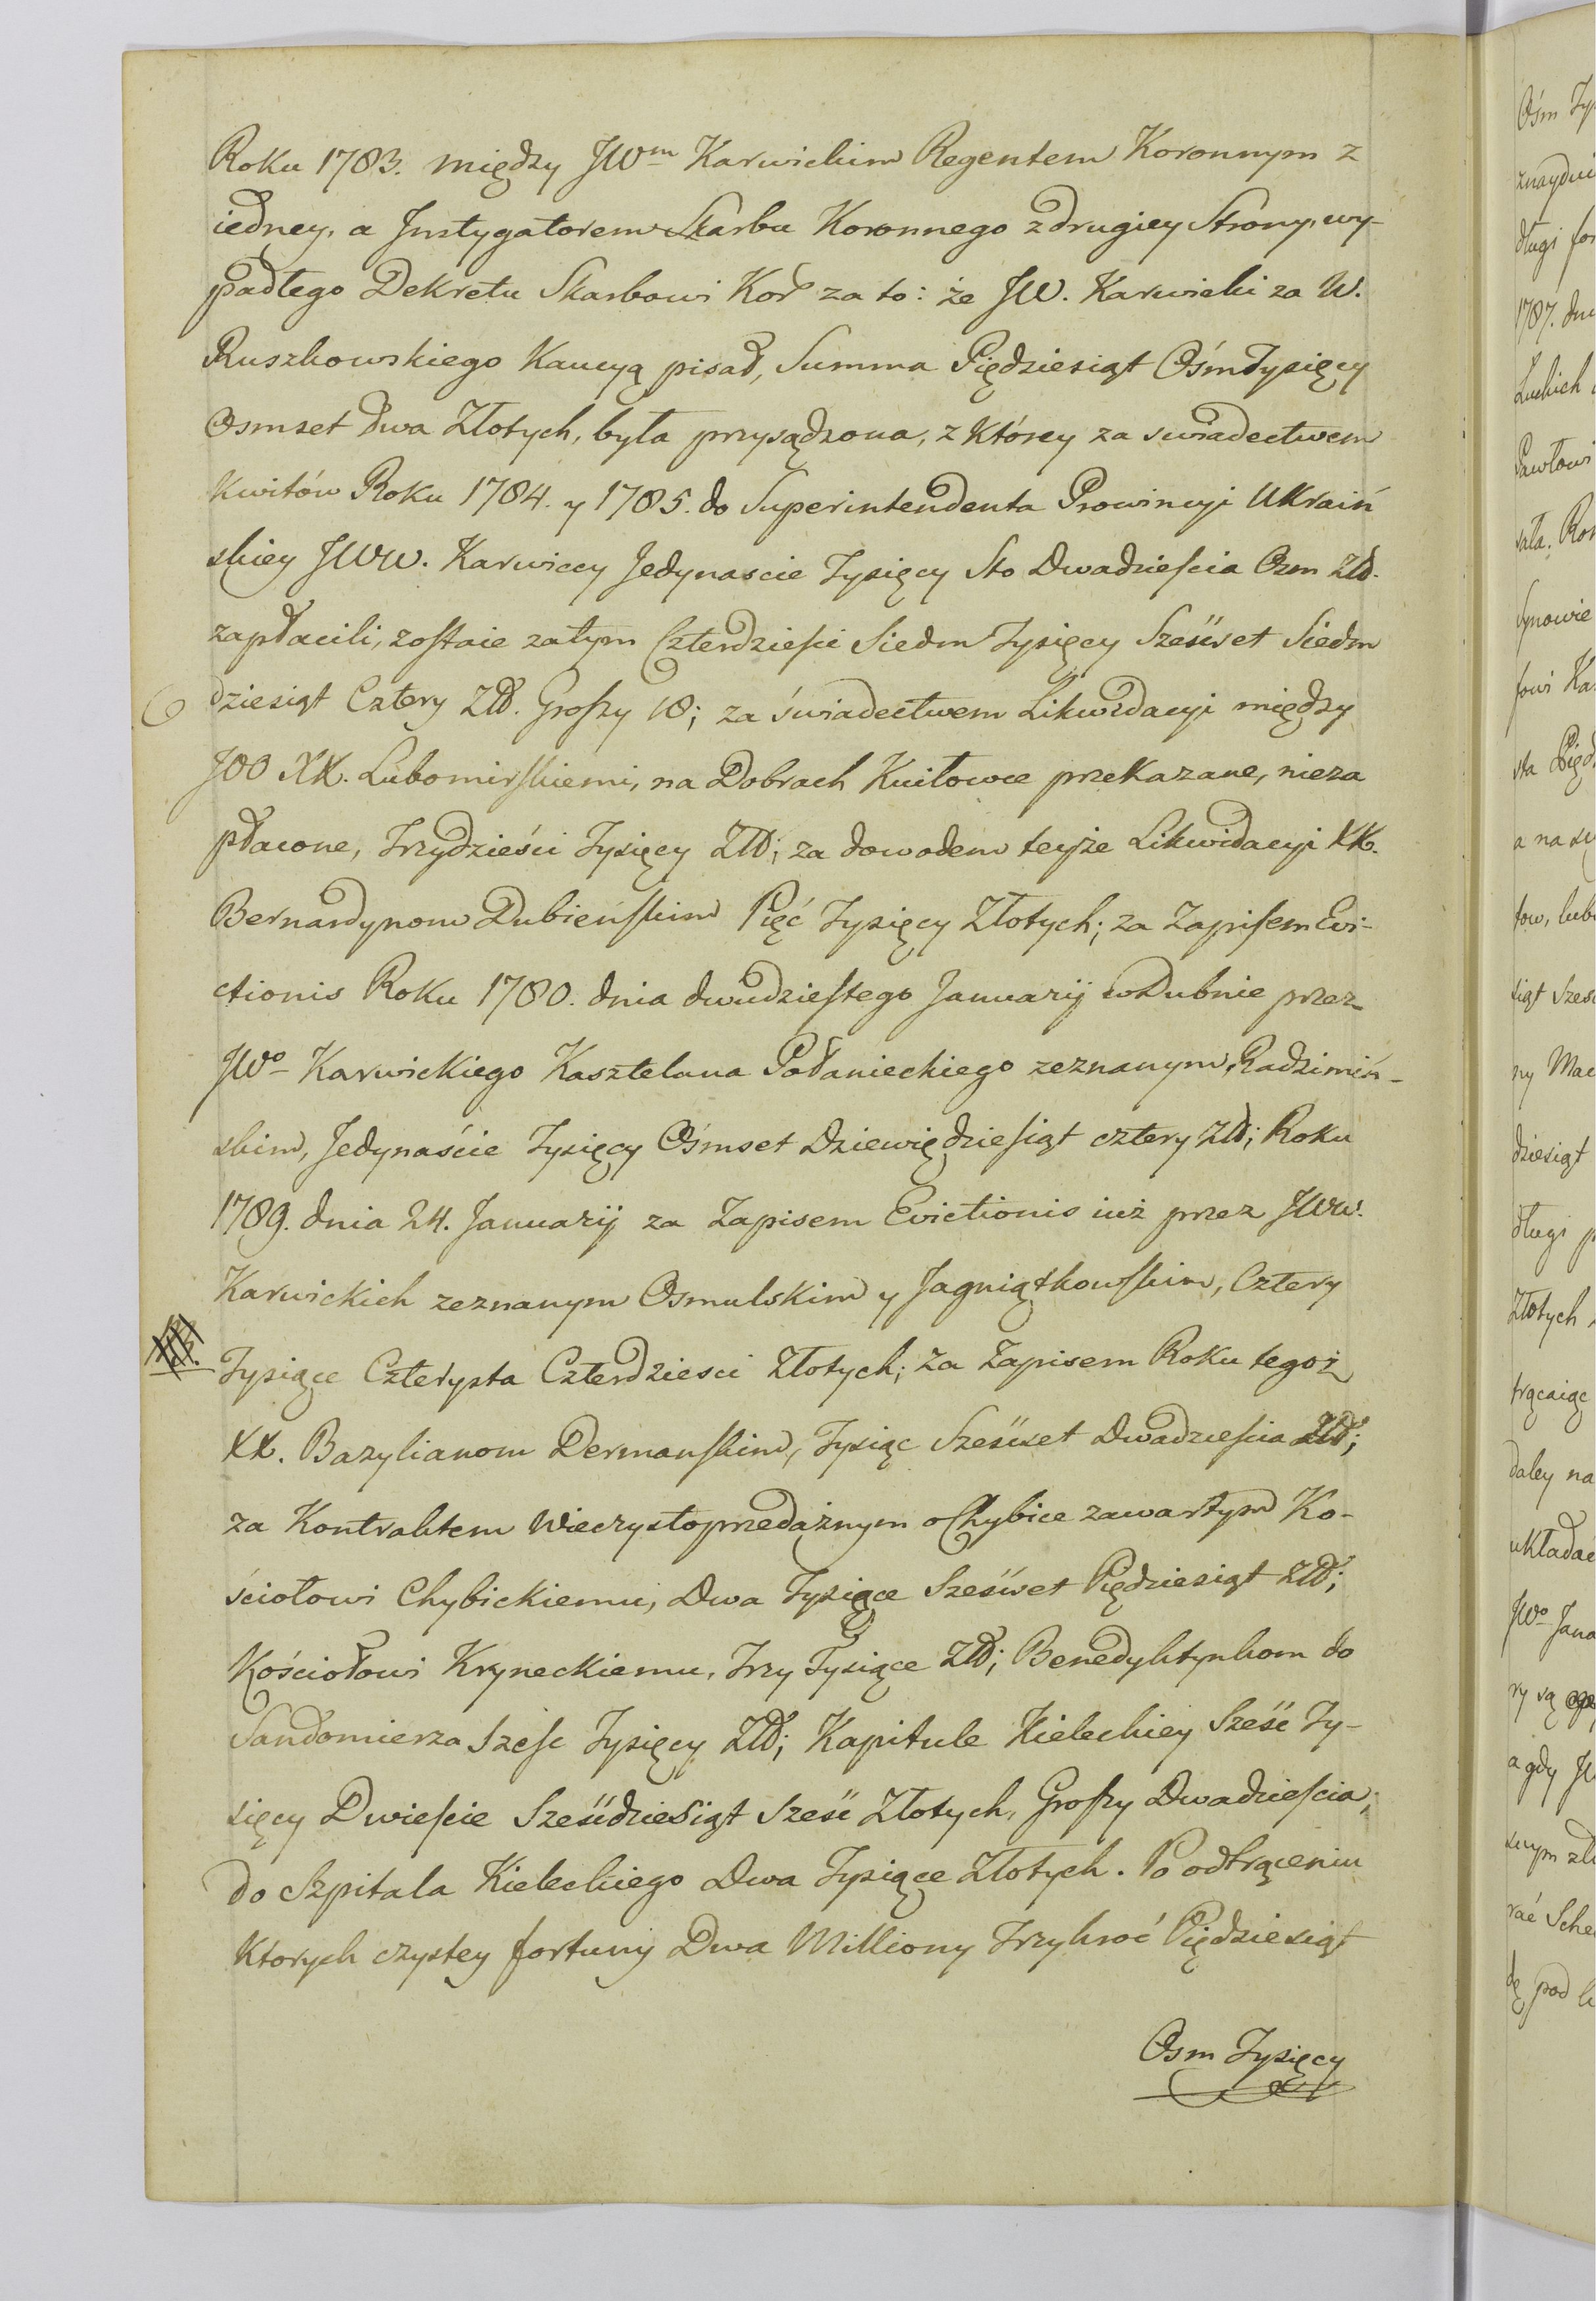 Roku 1783. między JWm Karwickim Regentem Koronnym z
iedney, a Instygatorem Skarbu Koronnego z drugiey Strony, wy-
padłego Dekretu Skarbowi Kor za to: że JW. Karwicki za W.
Ruszkowskiego Kaucyą pisał, Summa Piędziesiąt Ośm Tysięcy
Osmset Dwa Złotych, była przysądzona, z Którey za swiadectwem
Kwitów Roku 1784. y 1785. do Superintendenta Prowincyi Ukraiń
skiey JWW. Karwiccy Jedynascie Tysięcy Sto Dwadzieścia Ozm Złł.
zapłacili, zostaie zatym Czterdzieście Siedm Tysięcy Sześćset Siedm
dziesiąt Cztery Złł. Groszy 18; za świadectwem Likwidacyi między
JOO XX. Lubomirskiemi, na Dobrach Kniłowce przekazane, nieza
płacone, Trzydzieści Tysięcy Złł; za dowodem teyże Likwidacyi XX.
Bernardynom Dubieńskim Pięć Tysięcy Złotych; za Zapisem Evi-
ctionis Roku 1780. dnia dwudziestego Januarij w Dubnie przez
JWo Karwickiego Kasztelana Połanieckiego zeznanym, Radzimiń-
skim, Jedynaście Tysięcy Ośmset Dziewiędziesiąt cztery Złł; Roku
1789. dnia 24. Januarij za Zapisem Evictionis iuż przez JWW.
Karwickich zeznanym Osmulskim y Jagniątkowskim, Cztery
Tysiące Czterysta Czterdziesci Złotych; za Zapisem Roku tegoż
XX. Bazylianom Dermanskim, Tysiąc Sześćset Dwadzieścia Złł;
za Kontraktem Wieczystoprzedażnym o Chybice zawartym Ko-
ściołowi Chybickiemu, Dwa Tysiące Sześćset Piędziesiąt Złł;
Kościołowi Kryneckiemu, Trzy Tysiące Złł; Benedyktynkom do
Sandomierza Szesc Tysięcy Złł; Kapitule Kieleckiey Sześć Ty-
sięcy Dwieście Sześćdziesiąt Sześć Złotych, Groszy Dwadzieścia;
do Szpitala Kieleckiego Dwa Tysiące Złotych. Po odtrąceniu
Ktorych czystey fortuny Dwa Milliony Trzykroć Pięćdziesiąt
Osm Tysięcy